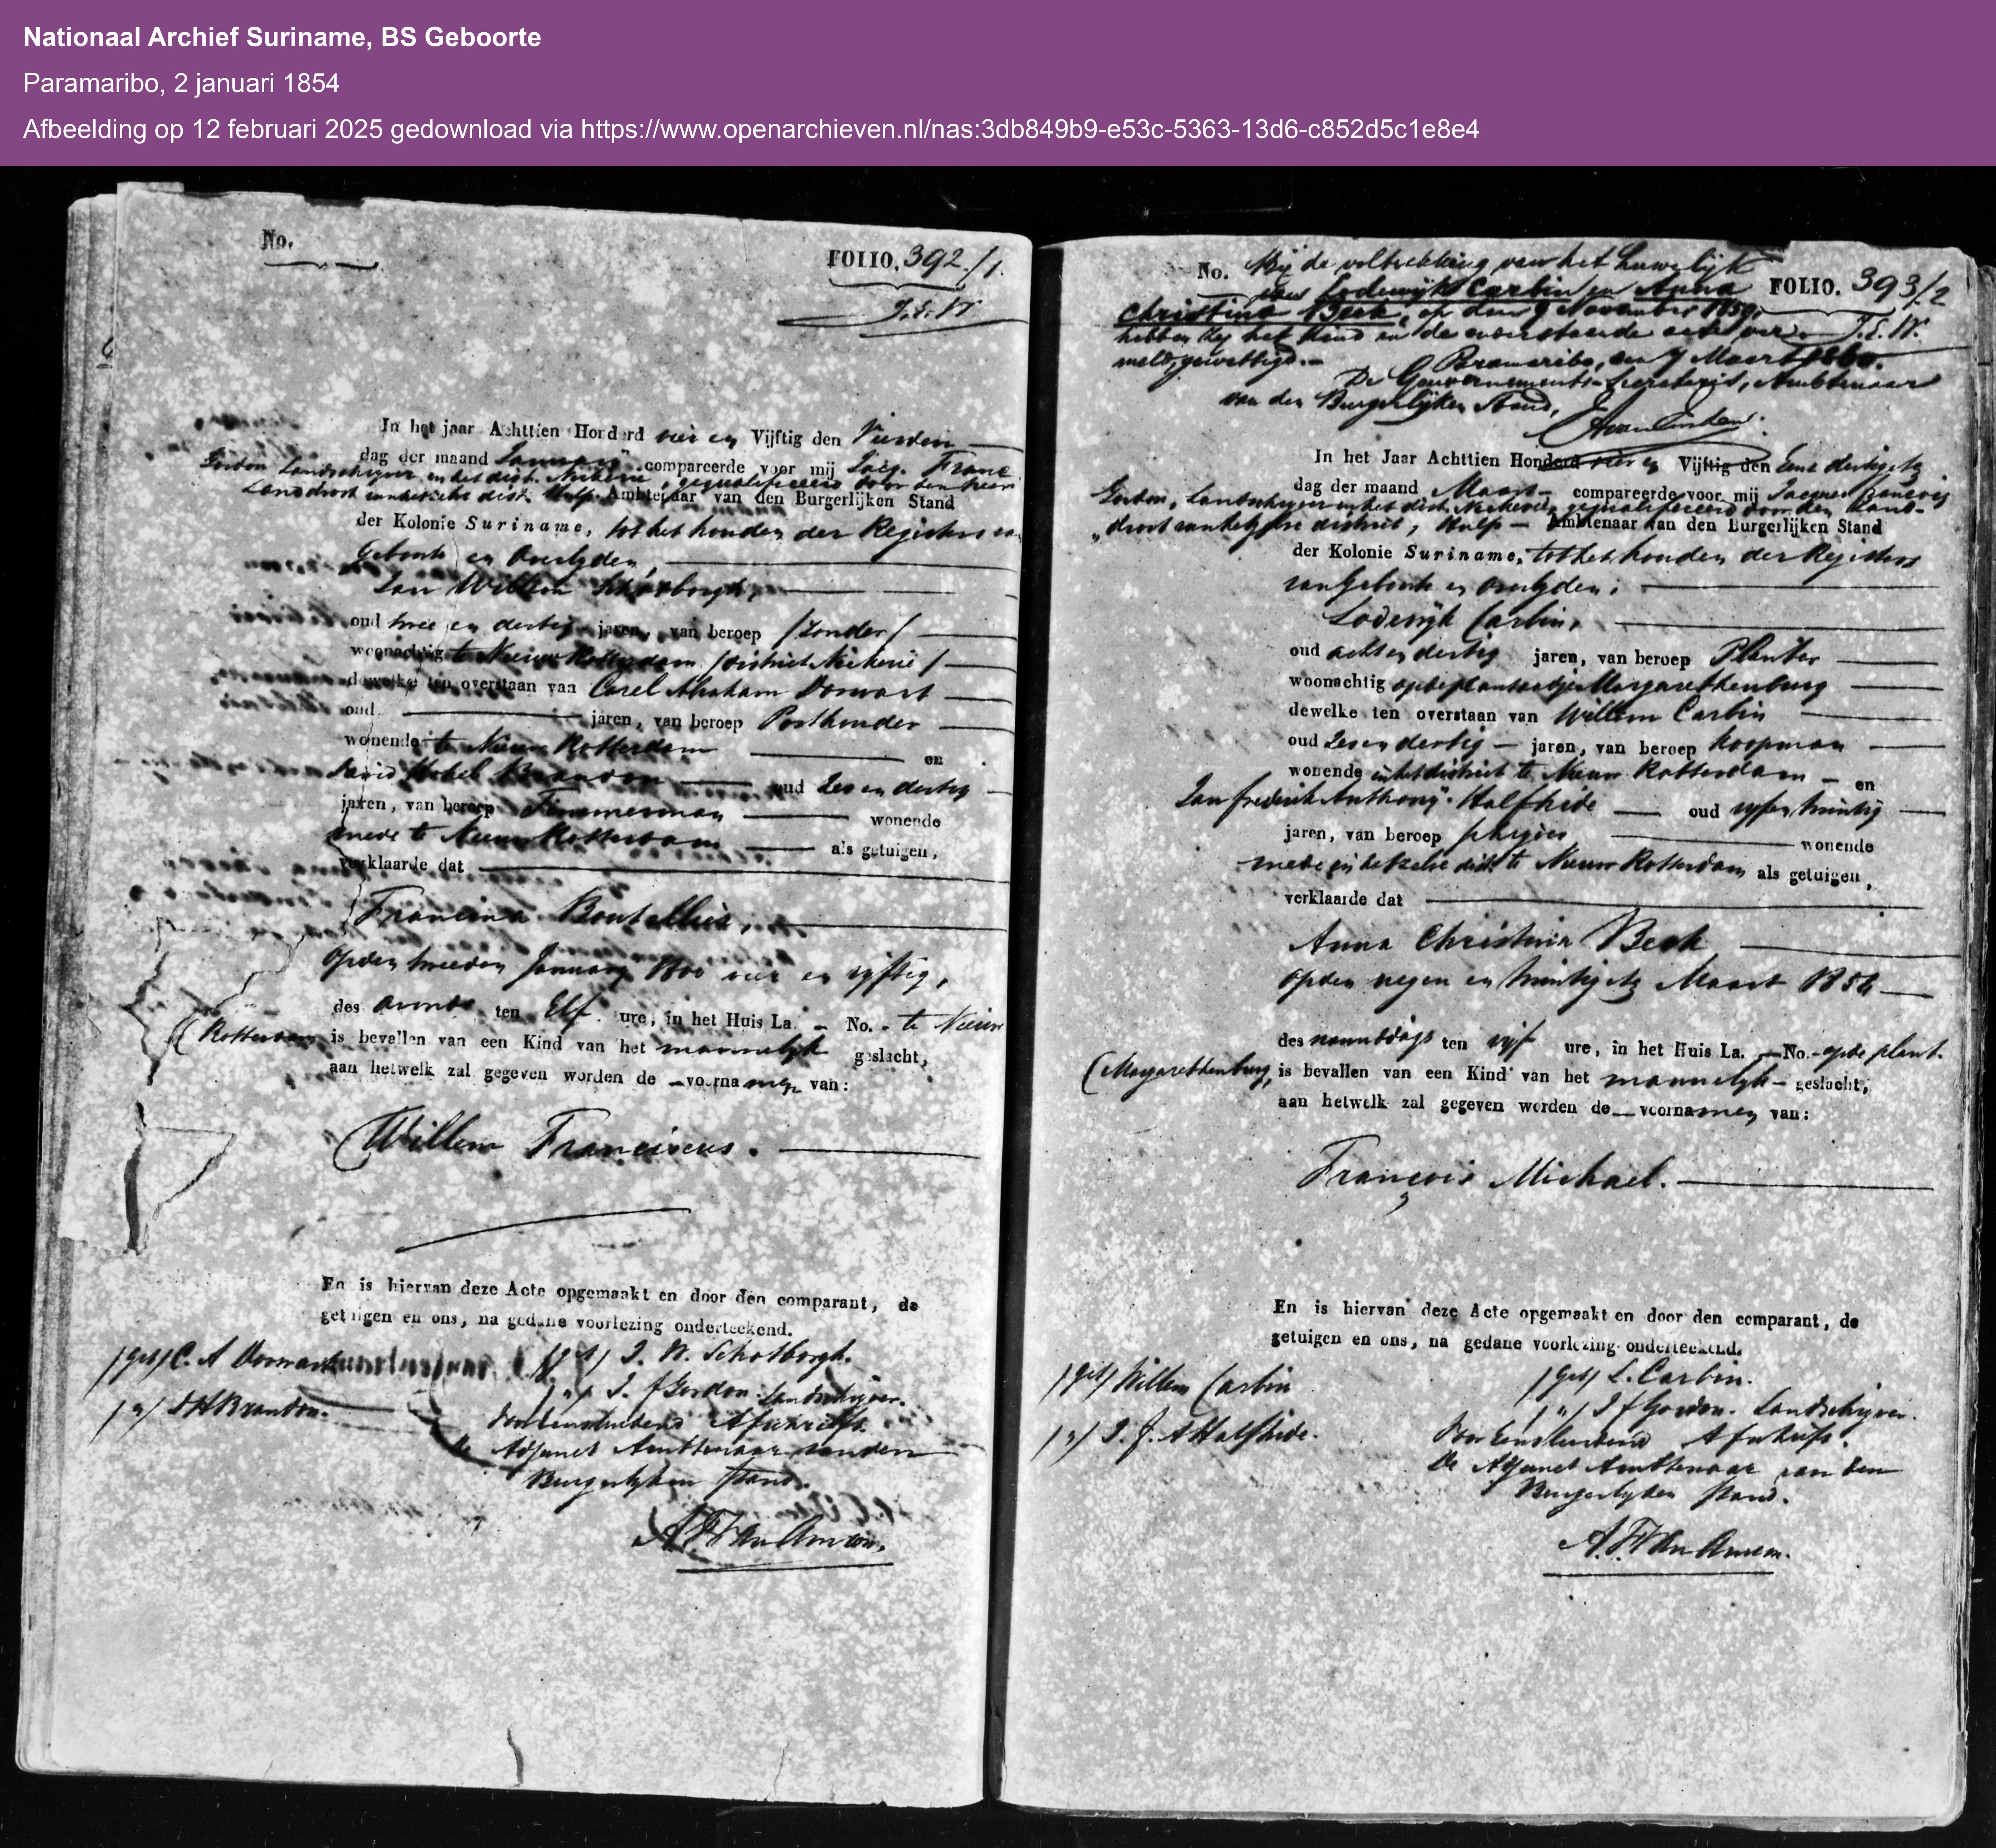 Nationaal Archief Suriname, BS Geboorte
Paramaribo, 2 januari 1854
Afbeelding op 12 februari 2025 gedownload via https://www.openarchieven.nl/nas:3db849b9-e53c-5363-13d6-c852d5c1e8e4
No.
FOLIO. 392/1.
In het jaar Achttien Honderd vier en Vijftig den Vierden
dag der maand January compareerde voor mij Jacq. Franc
Gordon Landschryver in het dist. Nickerie, gequalificeerd door den heer
Landdrost van hetzelve dist. Hulp Ambtenaar van den Burgerlijken Stand
der Kolonie Suriname, tot het houden der Registers van
Geboorte en Overlyden,
Jan Willem Schotborgh,
oud twee en dertig jaren, van beroep /zonder/
woonachtig te Nieuw Rotterdam /district Nickerie/
dewelke ten overstaan van Carel Abraham Dorwart
oud jaren, van beroep Posthouder
wonende te Nieuw Rotterdam en
David Brandon oud Zes en dertig
jaren, van beroep Timmerman wonende
mede te Nieuw Rotterdam als getuigen,
verklaarde dat
Francina Boutellier,
Op den tweeden January 1800 vier en vyftig,
des avonds ten Elf ure, in het Huis La. - No. - te Nieuw
(Rotterdam is bevallen van een Kind van het mannelyk geslacht,
aan hetwelk zal gegeven worden de voornamen van:
Willem Franciscus.
En is hiervan deze Acte opgemaakt en door den comparant, de
getuigen en ons, na gedane voorlezing onderteekend.
/get/ C. A Dorwart /get/ J. W. Schotborgh.
/"/ D H Brandon. /"/ J. f Gordon. Landschryver.
Voor Eensluidend Afschrift.
De Adjunct Ambtenaar van den
Burgerlyken Stand.
No. Bij de voltrekking van het huwelijk
FOLIO. 393/2
van Lodewijk Carbin en Anna
Christina Beck, op den 9 November 1859,
hebben zij het kind in de nevenstaande acte ver-
meld, gewettigd.-
Paramaribo, den 7 Maart 1860.
De Gouvernements-Secretaris, Ambtenaar
van den Burgerlijken Stand,
In het Jaar Achttien Honderd vier en Vijftig den Een en dertigste
dag der maand Maart compareerde voor mij Jacques François
Gordon, Landschryver in het dist. Nickerie, gequalificeerd door den Land-
drost van hetzelve district, Hulp - Ambtenaar van den Burgerlijken Stand
der Kolonie Suriname, tot het houden der Registers
van Geboorte en Overlyden;
Lodewyk Carbin,
oud acht en dertig jaren, van beroep Planter
woonachtig op de plantaadje Margarethenburg
dewelke ten overstaan van Willem Carbin
oud Zes en dertig - jaren, van beroep Koopman
wonende in het district te Nieuw Rotterdam - en
Jan frederik Anthony Halfhide oud vyf en twintig
jaren, van beroep wonende
mede in hetzelve dist. te Nieuw Rotterdam als getuigen,
verklaarde dat
Anna Christina Beck
Op den negen en twintigste Maart 1854
des namiddags ten vyf ure, in het Huis La. - No. - op de plant.
(Margarethenburg, is bevallen van een Kind van het mannelyk - geslacht,
aan hetwelk zal gegeven worden de voornamen van:
François Michael.
En is hiervan deze Acte opgemaakt en door den comparant, de
getuigen en ons, na gedane voorlezing onderteekend.
/get/ Willem Carbin /get/ L. Carbin.
/"/ J. f. A Halfhide. /"/ J f Gordon. Landschryver.
Voor Eensluidend Afschrift.
De Adjunct Ambtenaar van den
Burgerlyken Stand.